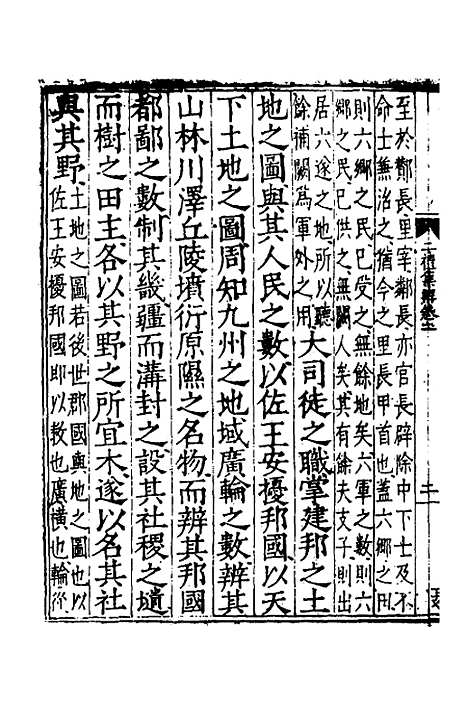 二禮集解卷
至於鄼長里宰鄰長亦官長辟除中下士及不
命士無治之猶今之里長甲首也蓋六鄉之田
則六鄉之民已受之無餘地矣六軍之數則六
鄉之民已供之無闕人矣其有餘夫支子則出
居六遂之地所以聽
餘補闕為軍外之用
大司徒之職掌建邦之土
地之圖與其人民之數以佐王安擾邦國以天
下土地之圖周知九州之地域廣輪之數辨其
山林川澤丘陵墳衍原隰之名物而辨其邦國
都鄙之數制其畿疆而溝封之設其社稷之壝
而樹之田主各以其野之所宜木遂以名其社
與其野
土地之圖若後世郡國輿地之圖也以
佐王安擾邦國即以教也廣橫也輪從